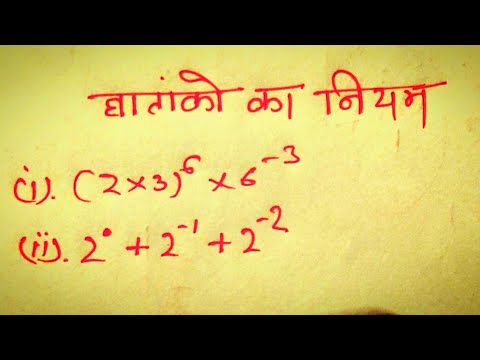 घातांको का नियम
(i). (2×3)⁶ × 6⁻³
(ii). 2⁰ + 2⁻¹ + 2⁻²